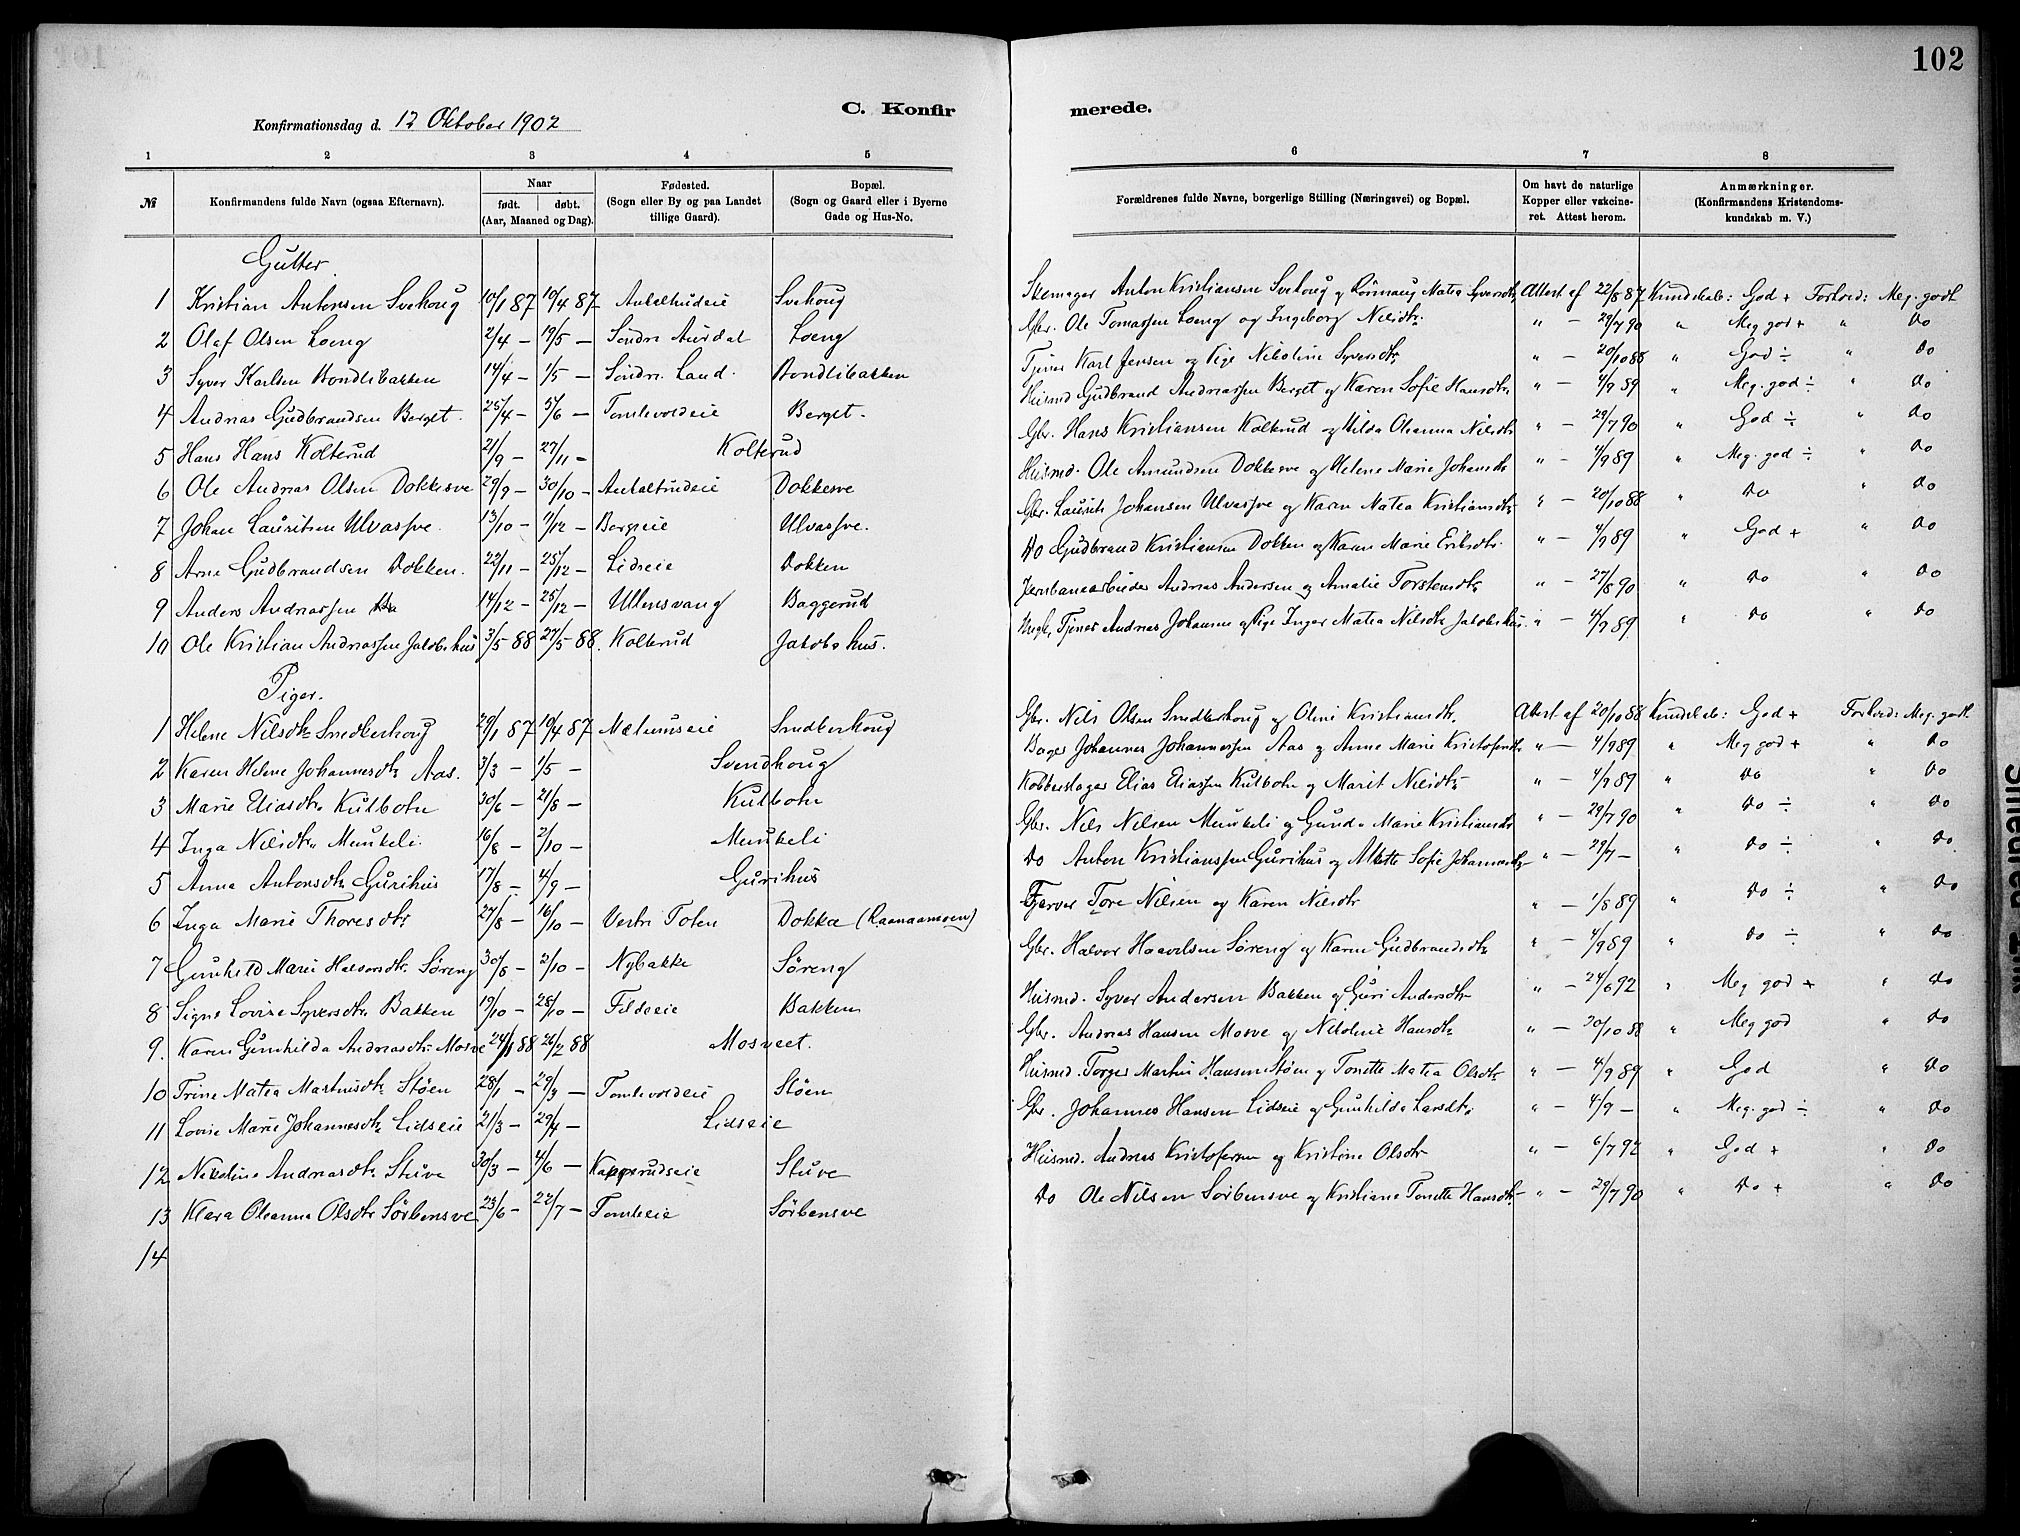 102
C. Konfirmerede.
Konfirmationsdag d. 12 Oktober 1902
1 2 3 4 5 6 7 8
№ Konfirmandens fulde Navn (ogsaa Efternavn). Naar født. døbt. (Aar, Maaned og Dag). Fødested. (Sogn eller By og paa Landet tillige Gaard). Bopæl. (Sogn og Gaard eller i Byerne Gade og Hus-No. Forældrenes fulde Navne, borgerlige Stilling (Næringsvei) og Bopæl. Om havt de naturlige Kopper eller vakcineret. Attest herom. Anmærkninger. (Konfirmandens Kristendomskundskab m. V.)
Gutter.
1 Kristian Antonsen Svehoug 10/1 87 10/4 87 Svehoug Skomager Anton Kristiansen Svehoug og Matea Syversdtr Attest af 22/8 87 Kundskab: God + Forhold: Meg. godt
2 Olaf Olsen Loeng 2/4 – 19/5 – Søndre Aurdal Loeng Gbr. Ole Tomassen Loeng og Ingeborg Nilsdtr. " – 29/7 90 " Meg god + " Do
3 Syver Karlsen Bondlibakken 14/4 – 1/5 – Søndre Land. Bondlibakken Tjener Karl Jensen og Pige Nikoline Syversdtr " – 20/10 88 " God ÷ " Do
4 Andreas Gudbrandsen Berget. 25/4 – 5/6 – Tomlevoldeie Berget. Husmd Gudbrand Andreassen Berget og Karen Sofie Hansdtr " – 4/9 89 " Meg. god ÷ " Do
5 Hans Hans Kolterud 21/9 – 27/11 – Kolterud Gbr. Hans Kristiansen Kolterud og Hilda Oleanna Nilsdtr " – 29/7 90 " God ÷ " Do
6 Ole Andreas Olsen Dokkesve 29/9 – 30/10 – Dokkesve Husmd. Ole Amundsen Dokkesve og Helene Marie Johansdtr " – 4/9 89 " Meg. god ÷ " Do
7 Johan Lauritsen Ulvassve. 13/10 – 1/12 – Bergseie Ulvassve. Gbr. Laurits Johansen Ulvassve og Karen Matea Kristiansdtr " – 20/10 88 " Do " Do
8 Arne Gudbrandsen Dokken. 22/11 – 25/12 – Lidseie Dokken Do Gudbrand Kristiansen Dokken og Karen Marie Eriksdtr. " – 4/9 89 " God + " Do
9 Anders Andreassen 14/12 – 25/12 – Ullensvang Baggerud Jernbanearbeider Andreas Andersen og Amalie Torstensdtr " – 27/8 90 " Do " Do
10 Ole Kristian Andreassen Jakobshus 3/5 88 27/5 88. Kolterud Jakobshus. Tjener Andreas Johansen og Pige Inger Matea Nilsdtr Jakobshus. " – 4/9 89 " Do " Do
Piger.
1 Helene Nilsdtr Smedkerhoug 29/1 87 10/4 87 Mælumseie Smedkerhoug Gbr. Nils Olsen Smedkerhoug og Oline Kristiansdtr. Attest af 20/10 88 Kundskab: God + Forhold: Meg. godt
2 Karen Helene Johannesdtr Aas. 3/3 – 1/5 – Svendhoug Bager Johannes Johannessen Aas og Anne Marie Kristofersdtr " – 4/9 89 " Meg god + " Do
3 Marie Eliasdtr Kulbotn 30/6 – 21/8 – Kulbotn Kobberslager Elias Eliassen Kulbotn og Marit Nilsdtr " – 4/9 89 " Do " Do
4 Inga Nilsdtr Munkeli. 16/8 – 2/10 – Munkeli Gbr. Nils Nilsen Munkeli og Gunda Marie Kristiansdtr " – 29/7 90 " Do ÷ " Do
5 Anna Antonsdtr Gurihus 17/8 – 4/9 – Gurihus Do Anton Kristianssen Gurihus og Mette Sofie Johannesdtr " – 29/7 – " Do ÷ " Do
6 Inga Marie Thoresdtr 27/8 – 16/10 – Vestre Toten Dokka (Raanaamoen) Tore Nilsen og Karen Nilsdtr " – 1/8 89 " Do ÷ " Do
7 Gunhild Marie Halvorsdtr. Søreng 30/8 – 2/10 – Nybakke Søreng Gbr. Halvor Haavelsen Søreng og Karen Gudbrandsdtr " – 4/9 89 " Do ÷ " Do
8 Signe Lovise Syversdtr. Bakken 19/10 – 28/10 – Fildseie Bakken Husmd. Syver Andersen Bakken og Guri Andersdtr " – 24/6 92 " Meg god + " Do
9. Karen Gunhilda Andreasdtr. Mosve 24/1 88 26/2 88 Mosveet. Gbr. Andreas Hansen Mosve og Nikoline Hansdtr " – 30/10 88 " Meg god " Do
10 Trine Matea Martinsdtr Støen 28/1 – 29/3 – Tomlevoldeie Støen Husmd. Torger Martin Hansen Støen og Tonette Matea Olsdtr " – 4/9 89 " God " Do
11 Lovise Marie Johannesdtr Lidseie 21/3 – 29/4 – Lidseie Gbr. Johannes Hansen Lidseie og Gunhilda Larsdtr " – 4/9 – " Meg. god ÷ " Do
12 Nikoline Andreasdtr Stuve 30/3 – 4/6 – Kapprudseie Stuve Husmd. Andreas Kristofersen og Kristine Olsdtr " – 6/7 92 " God + " Do
13 Klara Oleanna Olsdtr Sørbensve 23/6 – 22/7 – Tomleeie Sørbensve Do Ole Nilsen Sørbensve og Kristiane Tonette Hansdtr " – 29/7 90 " Do + " Do
14